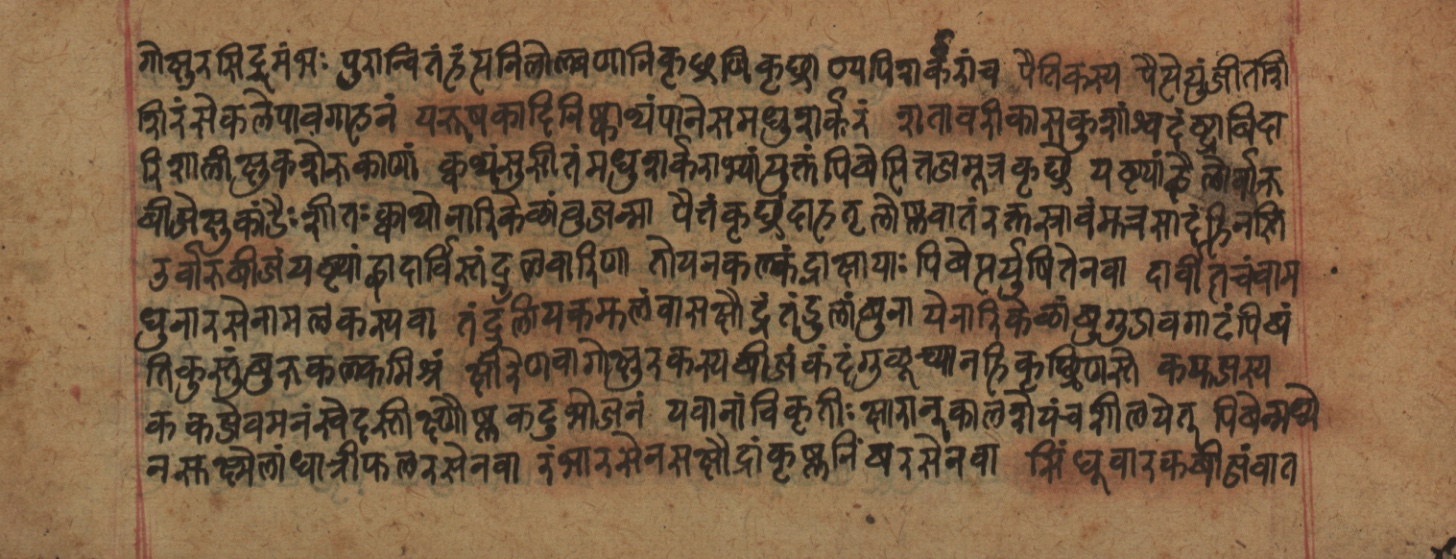 गोक्षुरसिद्धमंभः पुरान्वितं हंसनिलोल्बणानि कृछ्राणि कृछ्राण्यपि शर्करां च पैत्तिकस्य पैत्ते युंजीत शि
शिरं सेकलेपावगाहनं परूषकादिनिष्क्वाथ्यं पाने समधुशर्करं शतावरीकासकुशांश्वदंष्ट्राविदा
रिशालीक्षुकशेरुकाणां क्वथं सुशीतं मधुशर्कराभ्यां युक्तं पिबेत्पित्तजमूत्रकृछ्रे यष्ट्याह्वैलोर्वारु
बीजेक्षुकांडैः शीतः क्वाथो नारिकेलांबुजन्मा पैत्तं कृछ्रं दाहतृलोष्णवातं रक्तस्रावं मचसादं हिनस्ति
उर्वारुबीजं यष्ट्याह्वादार्वि स्तंदुलवारिणा तोयेन कल्कं द्राक्षायाः पिबेत्पर्युषितेन वा दार्वीतृचं वा म
धुना रसेनामलकस्य वा तंदुलीयकमूलं वा सक्षौद्रं तंदुलांबुना ये नारिकेलांबुगुडावगाढं पिबं
ति कुस्तुंबुरुकल्कमिश्रं क्षीरेण वा गोक्षुरकस्य बीजं कंदं गुडूच्या नहि कृछ्रिणस्ते कफजस्य
कफजे वमनं स्वेदस्तीक्ष्णोष्णकटुभोजनं यवानां विकृतीः क्षारान् कालशेयं च शीलयेत् पिबेन्मद्ये
न सूक्ष्मेलां धात्रीफलरसेन वा रंभारसेन सक्षौद्रां कृष्णनिंबरसेन वा सिंधूवारकबीजं वा त